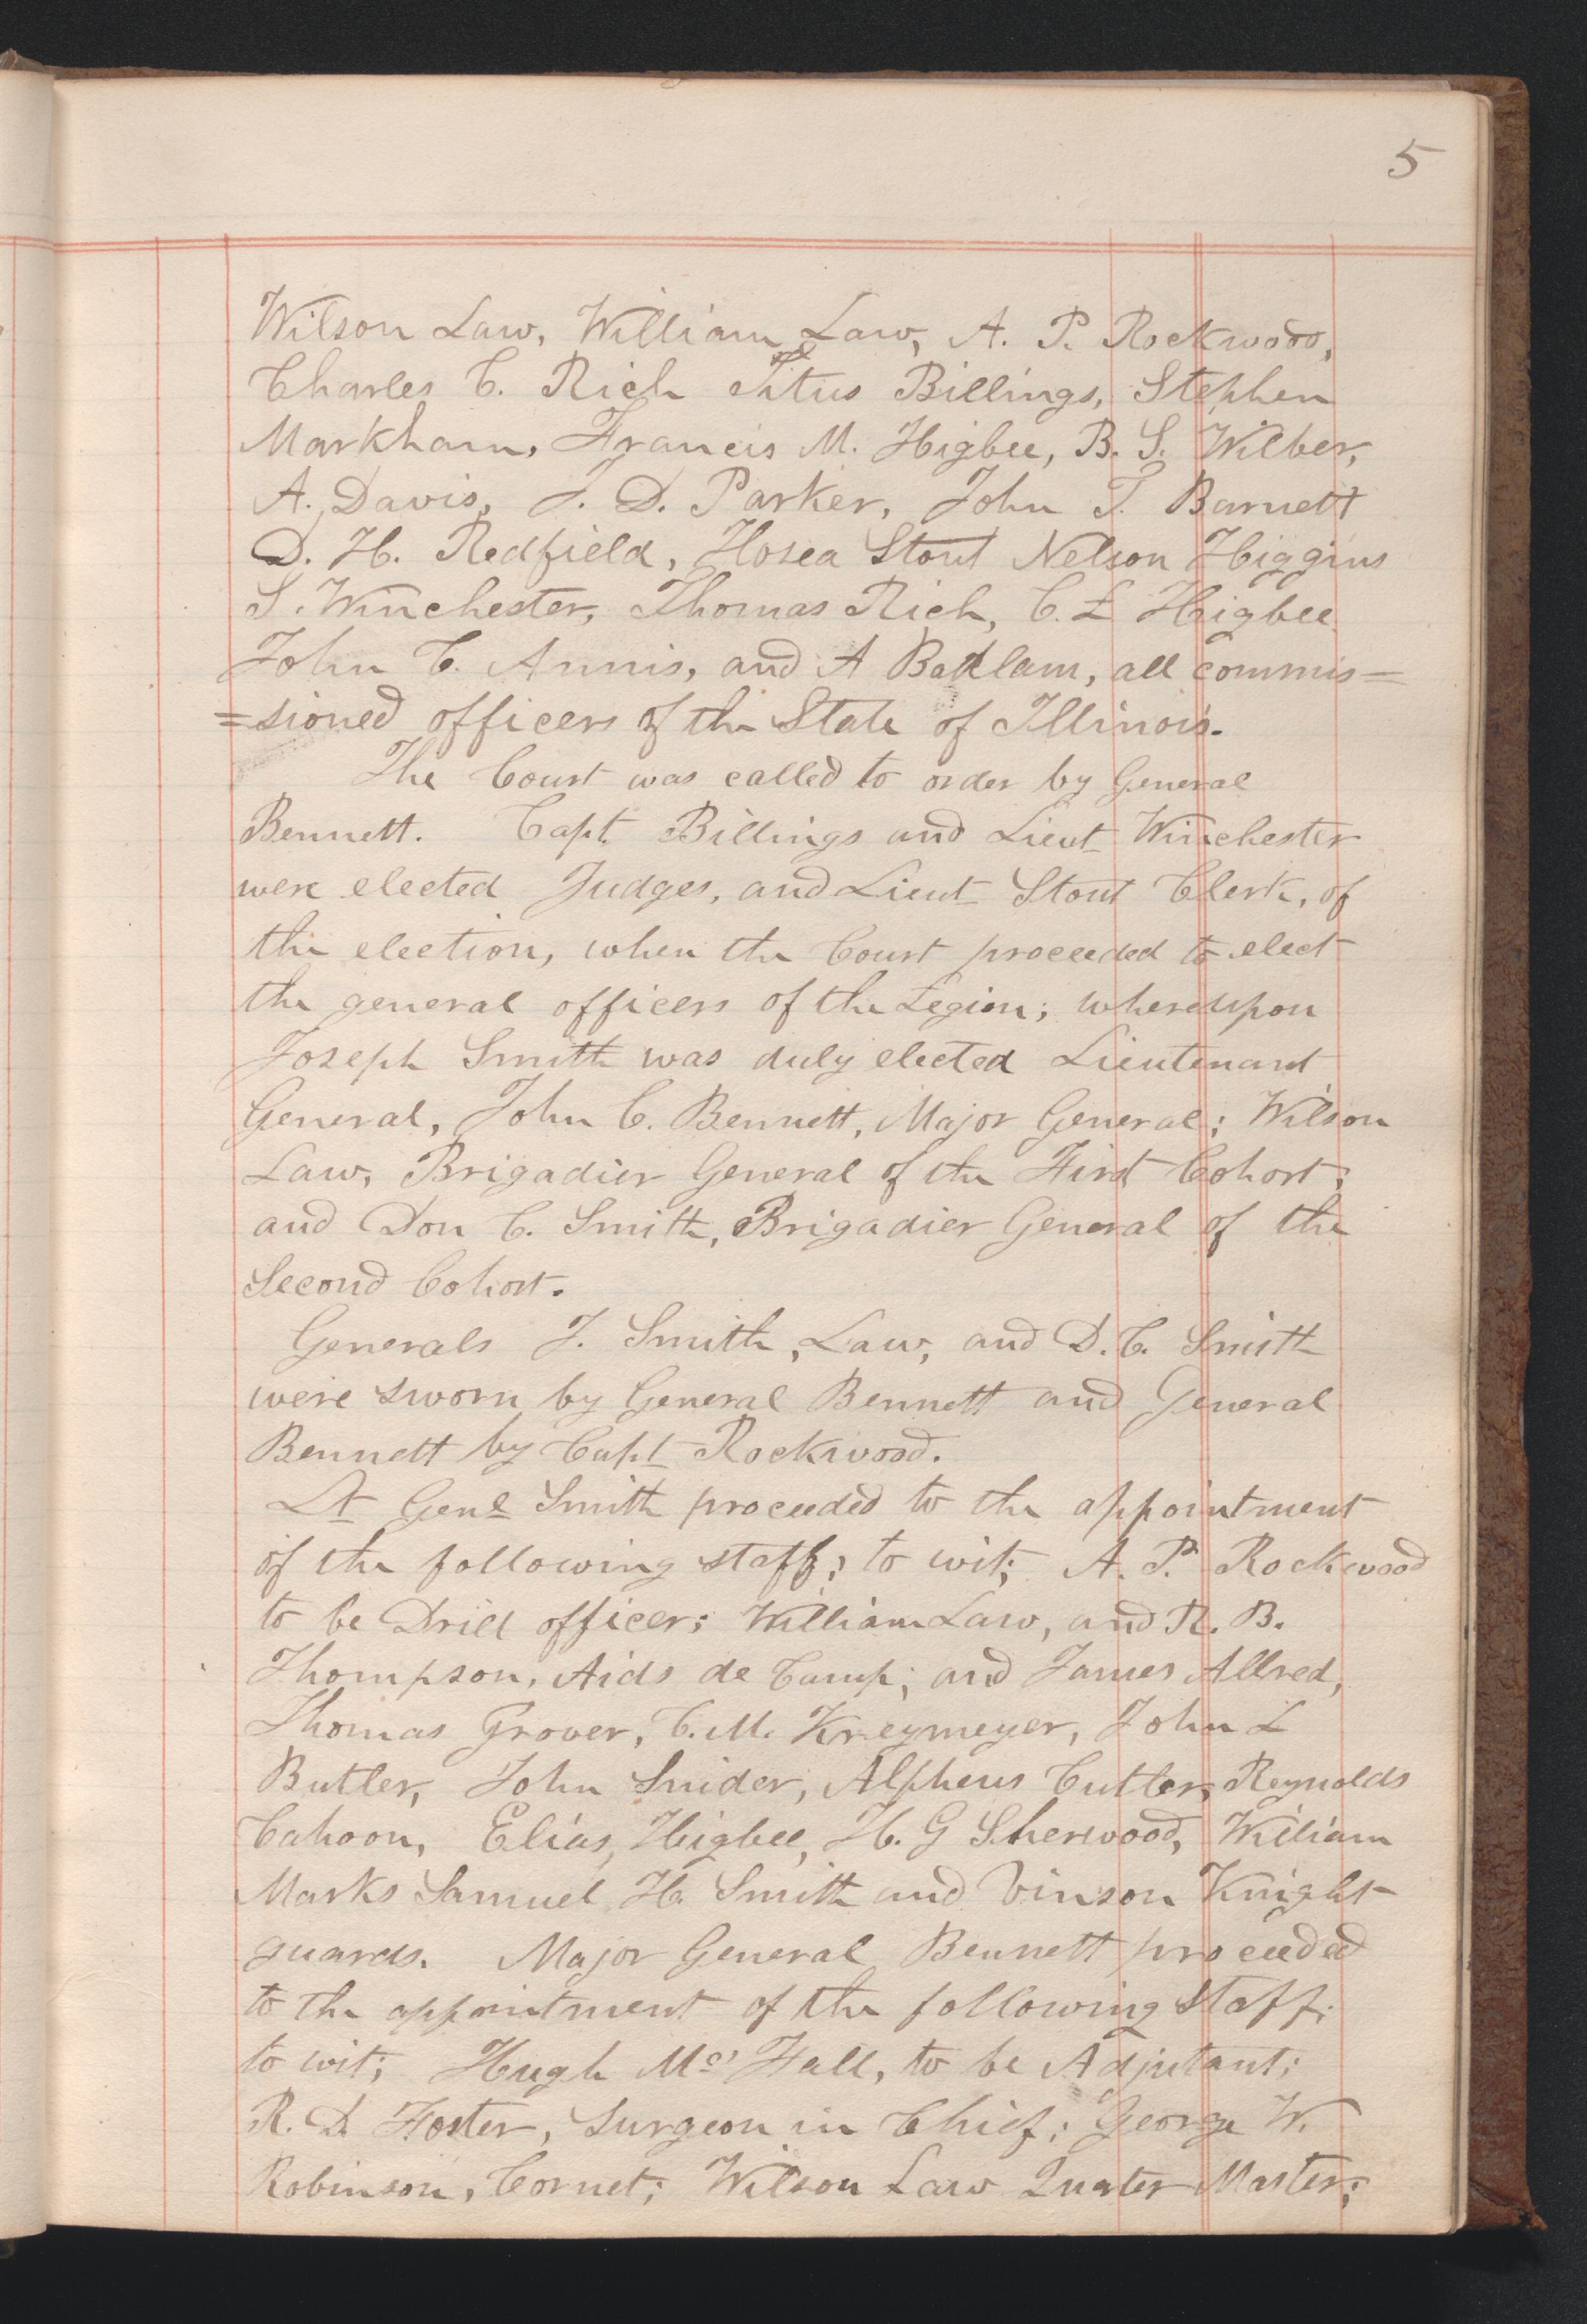 5
Wilson Law, William Law, A. P. Rockwood,
Charles C. Rich Titus Billings, Stephen
Markham, Francis M. Higbee, B. S. Wilber,
A. Davis, J. D. Parker, John T. Barnett
D. H. Redfield, Hosea Stout Nelson Higgins
S. Winchester, Thomas Rich, C. L Higbee
John C. Annis, and A Badlam, all commis=
=sioned officers of the State of Illinois.
The Court was called to order by General
Bennett. Capt. Billings and Lieut Winchester
were elected Judges, and Lieut Stout Clerk, of
the election, when the Court proceeded to elect
the general officers of the Legion; whereupon
Joseph Smith was duly elected Lieutenant
General, John C. Bennett, Major General; Wilson
Law, Brigadier General of the First Cohort;
and Don C. Smith, Brigadier General of the
Second Cohort.
Generals J. Smith, Law, and D. C. Smith
were sworn by General Bennett and General
Bennett by Capt Rockwood.
Lt Genl Smith proceeded to the appointment
of the following staff; to wit; A. P. Rockwood
to be Drill officer; William Law, and R. B.
Thompson, Aids de Camp; and James Allred,
Thomas Grover, C. M. Kreymeyer, John L
Butler, John Snider, Alpheus Cutler, Reynolds
Cahoon, Elias, Higbee, H. G Sherwood, William
Marks Samuel H. Smith and Vinson Knight
guards. Major General Bennett proceeded
to the appointment of the following staff;
to wit; Hugh Mc Fall, to be Adjutant;
R. D. Foster, Surgeon in Chief; George W.
Robinson, Cornet; Wilson Law Quater Master;